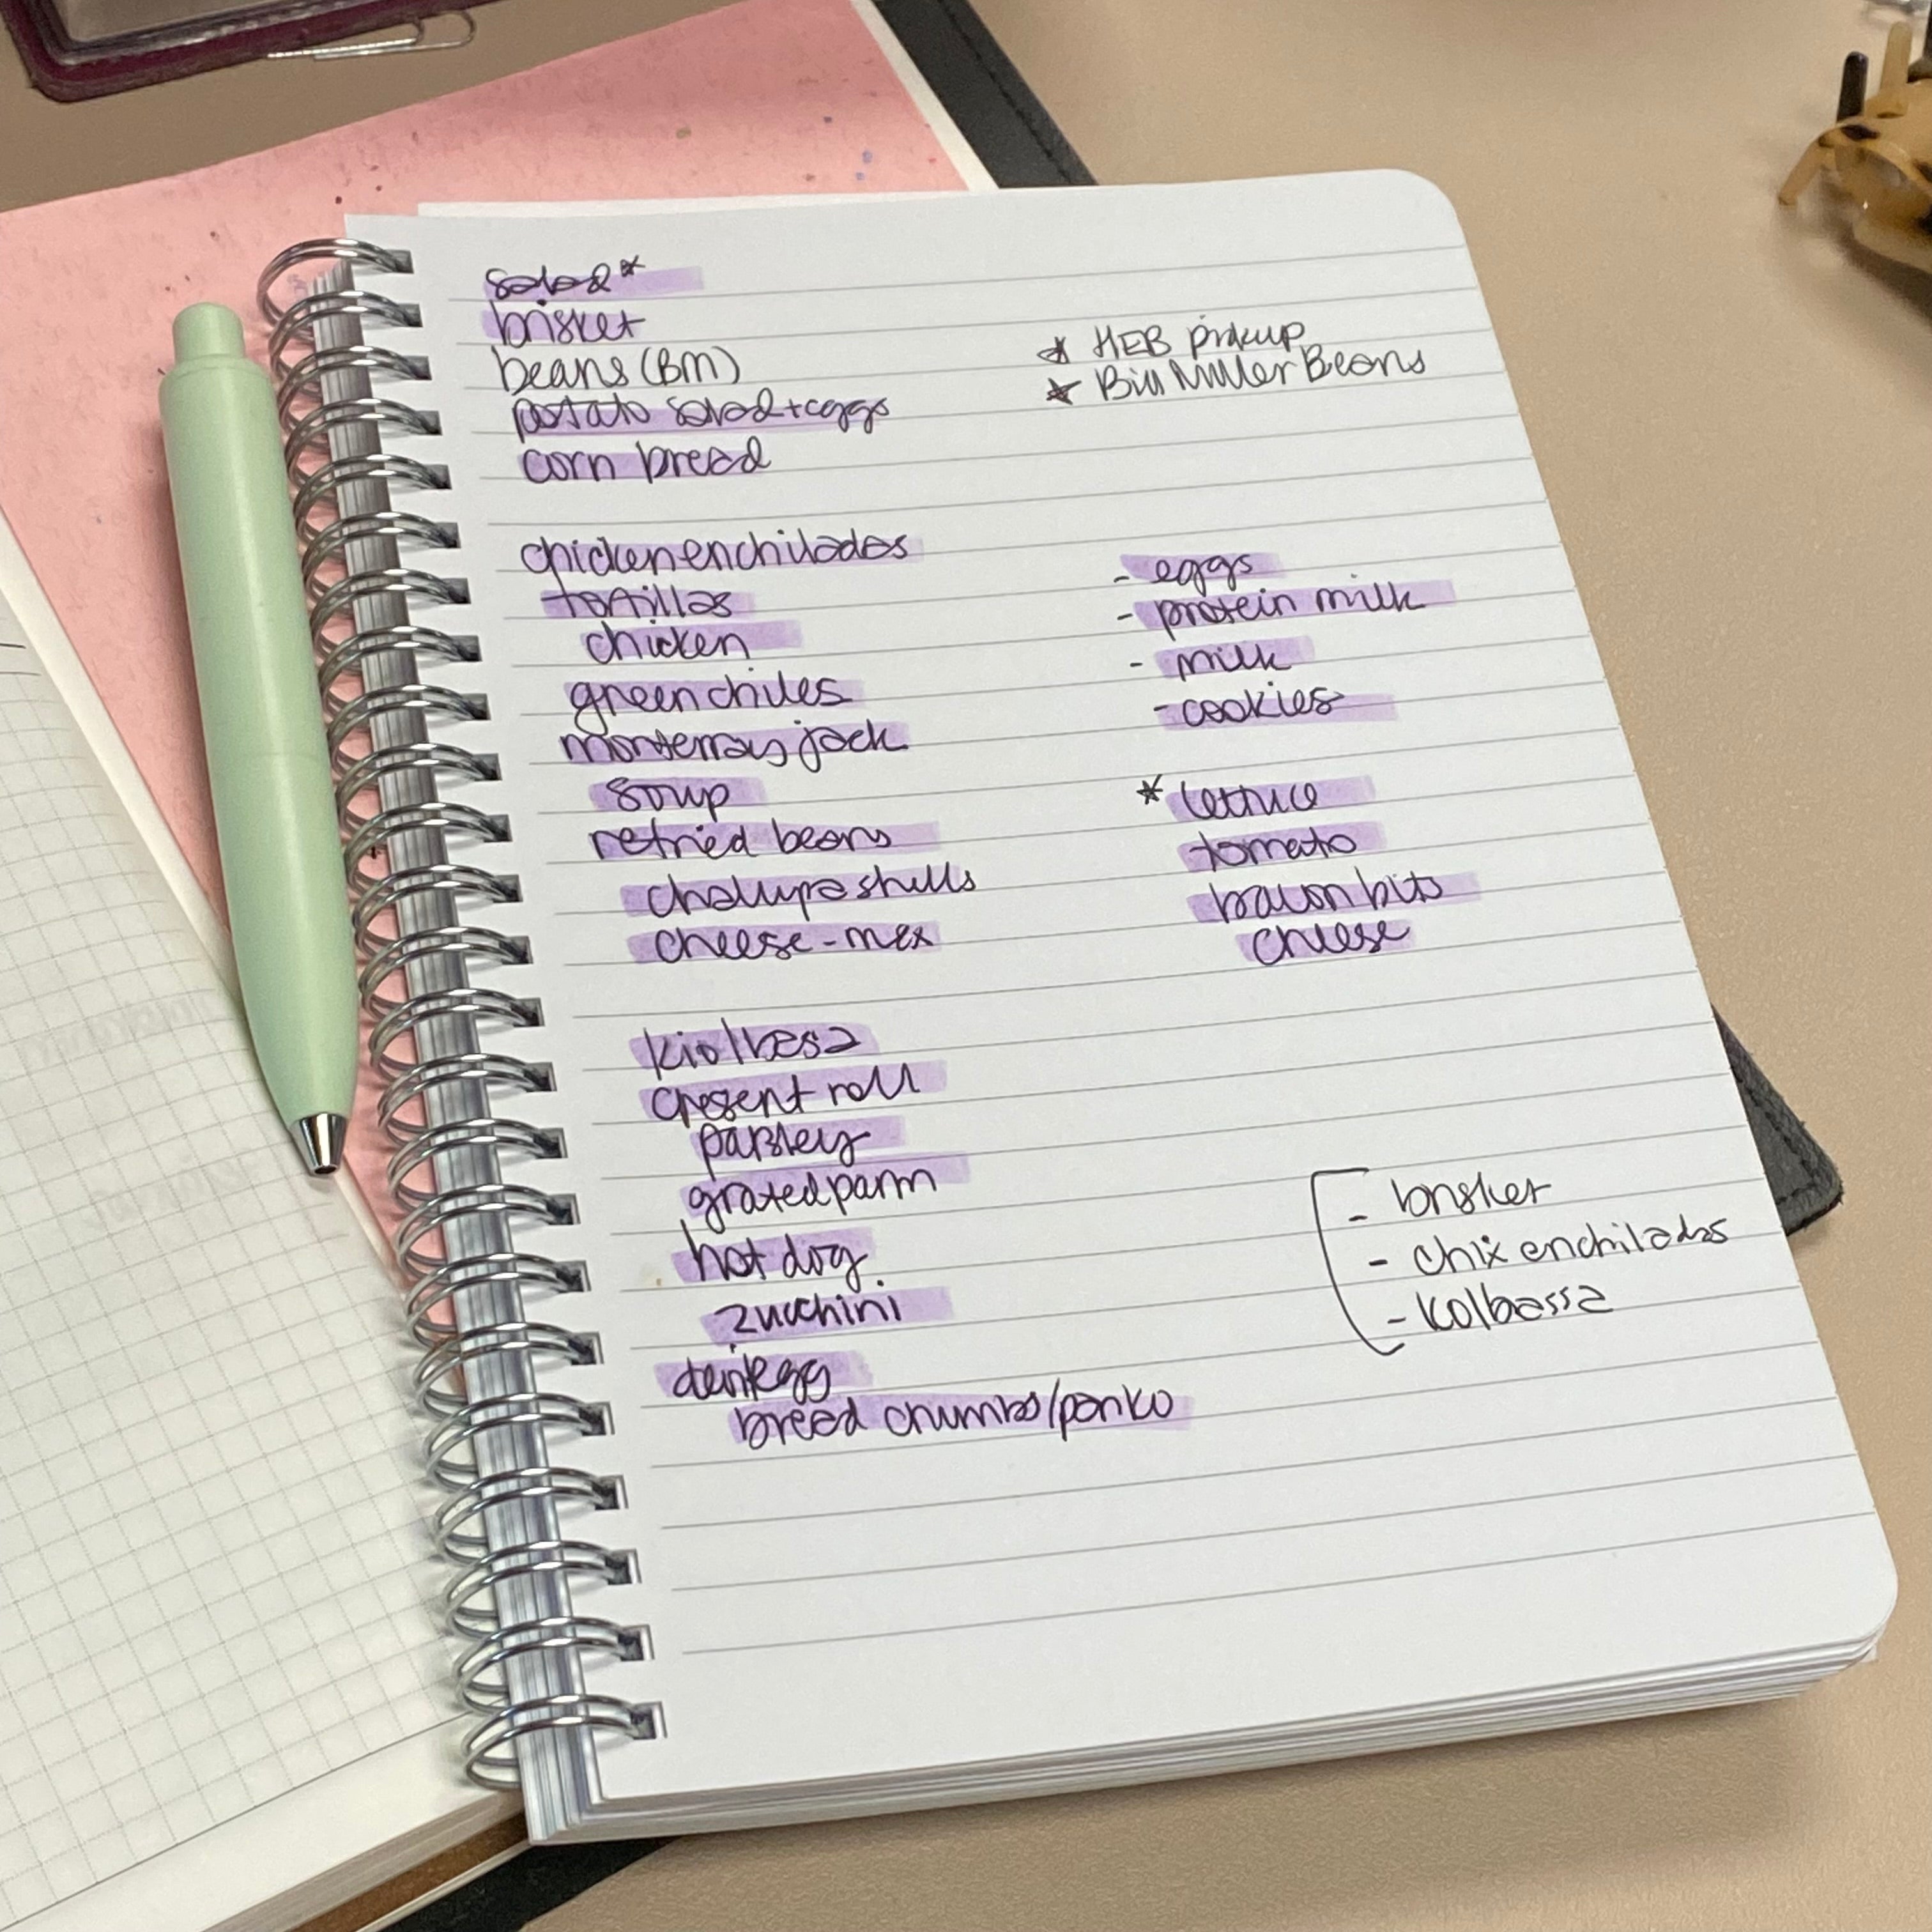 salad*
brisket
beans (BM)
potato salad + eggs
corn bread
* HEB pickup
* Bill Miller Beans
chicken enchiladas
tortillas
chicken
green chiles
monterray jack
soup
refried beans
chalupa shells
cheese - mex
- eggs
- protein milk
- milk
- cookies
* lettuce
tomato
bacon bits
cheese
kiolbasa
cresent roll
parsley
grated parm
hot dog
zucchini
bread crumbs/panko
- brisket
- chix enchiladas
- kolbassa